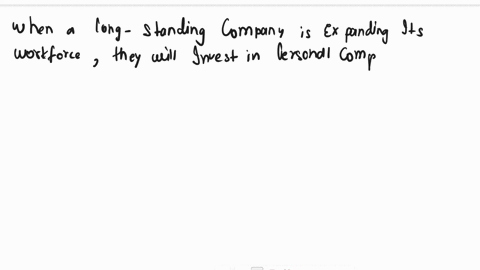 when a long-standing Company is Expanding Its
workforce, they will Invest in Personal Comp